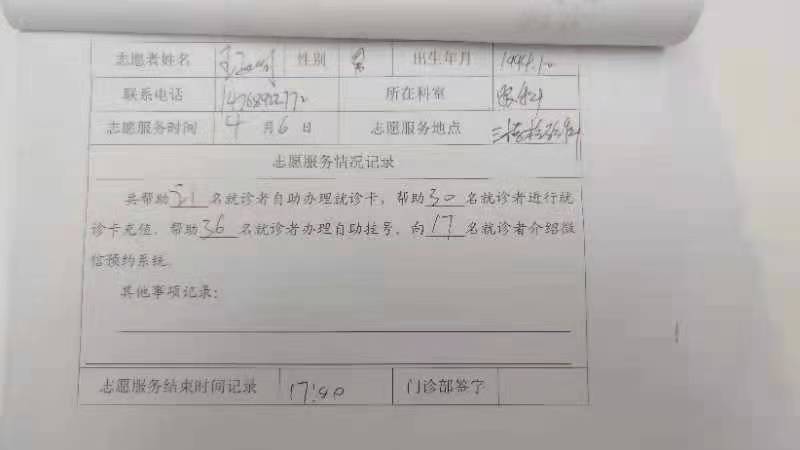 志愿者姓名 性别 男 出生年月
联系电话 所在科室
志愿服务时间 4 月 6 日 志愿服务地点
志愿服务情况记录
共帮助 21 名就诊者自助办理就诊卡，帮助 30 名就诊者进行就
诊卡充值，帮助 36 名就诊者办理自助挂号，向 17 名就诊者介绍微
信预约系统。
其他事项记录：
志愿服务结束时间记录 门诊部签字